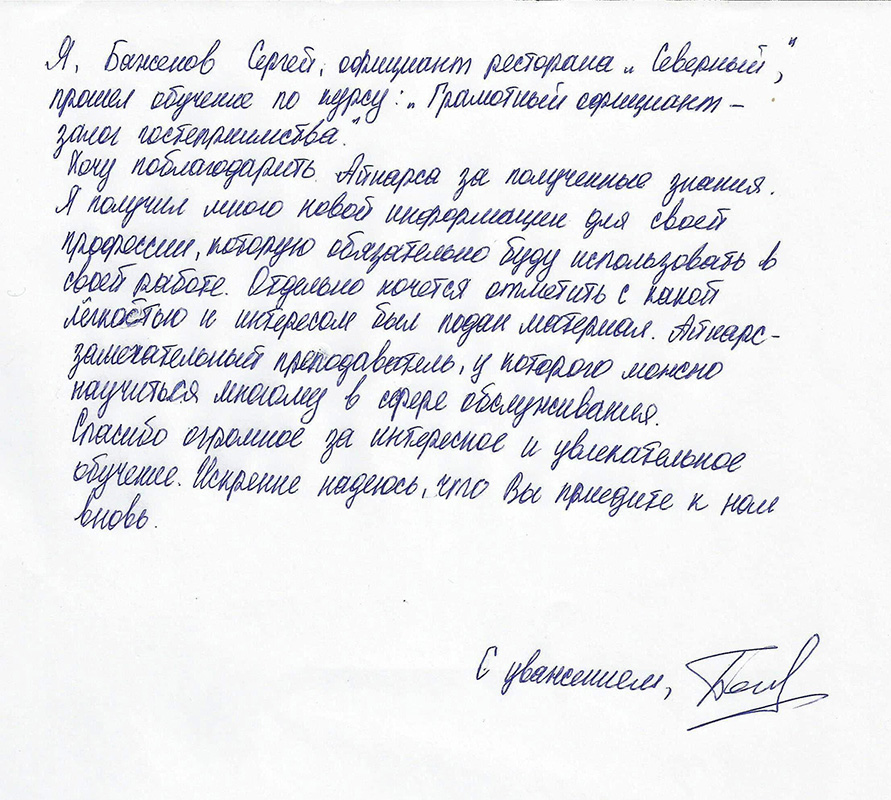 Я, Баженов Сергей, официант ресторана „Северный",
прошел обучение по курсу: „Грамотный официант –
залог гостеприимства."
Хочу поблагодарить Айнарса за полученные знания.
Я получил много новой информации для своей
профессии, которую обязательно буду использовать в
своей работе. Отдельно хочется отметить с какой
лёгкостью и интересом был подан материал. Айнарс-
замечательный преподаватель, у которого можно
научиться многому в сфере обслуживания.
Спасибо огромное за интересное и увлекательное
обучение. Искренне надеюсь, что Вы приедите к нам
вновь.
С уважением,